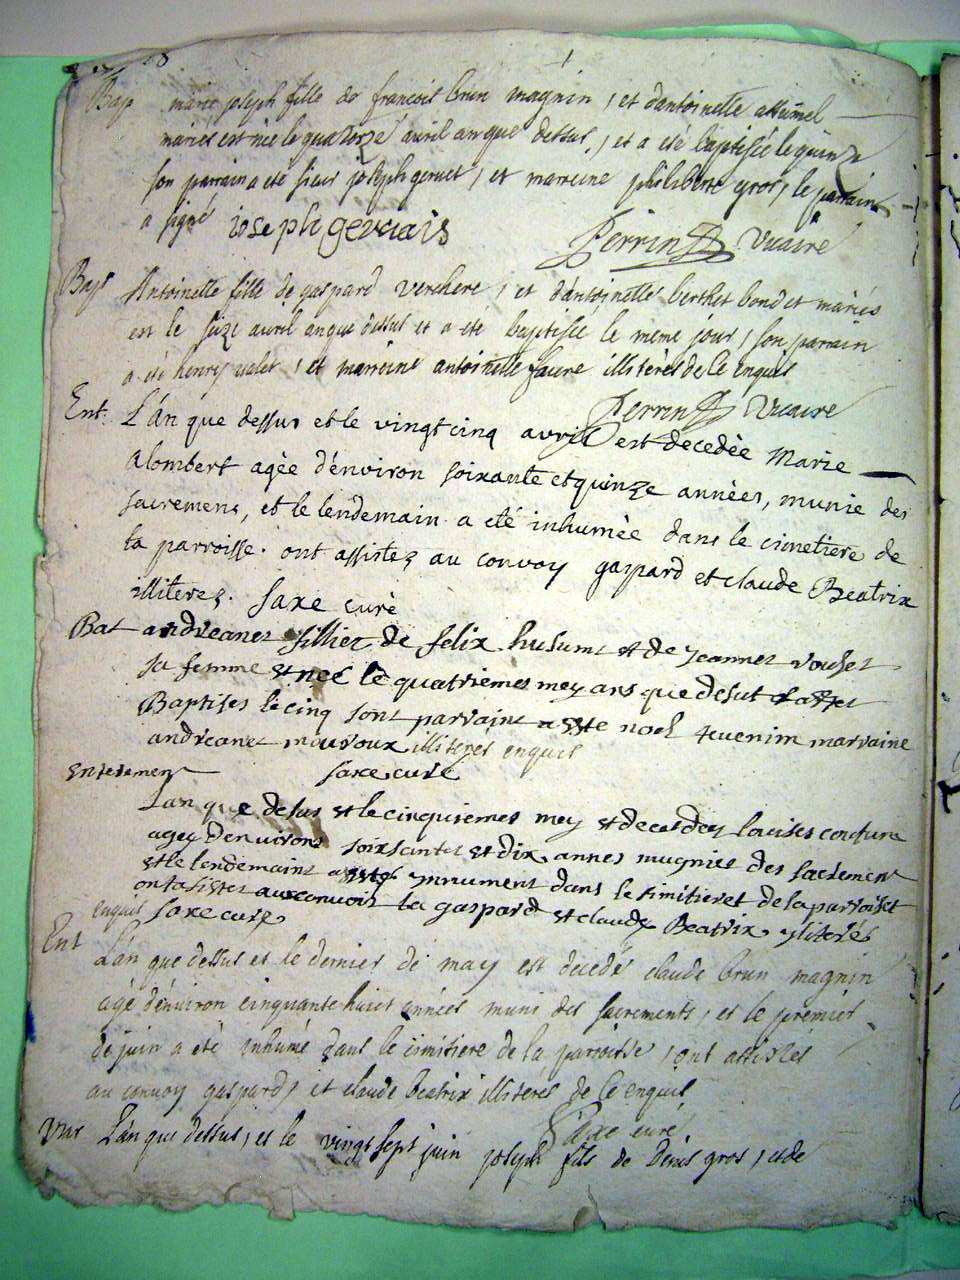 Bap marie joseph fille de francois brun magnin, et dantoinette
mariés est née le quatorze avril an que dessus, et a été baptisée le quinze
son parrain a été sieur joseph gervet, et marreine philiberte gros, le parrain
a signé joseph gervais Perrin Vicaire
Bap Antoinette fille de gaspard verchere, et dantoinette berthet bondet mariés
est le seize avril an que dessus et a été baptisée le même jour, son parrain
a été henry valet, et marreine antoinette favre illiterés de ce enquis
Perrin Vicaire
Ent. L'an que dessus et le vingt cinq avril est decedée Marie
alombert agée d'énviron soixante et quinze années, munie des
sacremens, et le lendemain a eté inhumée dans le cimetiere de
la parroisse. ont assistez au convoy gaspard et claude Beatrix
illiterez. saxe curé
Bat andreanet fillier de felix husum et de jeannet
sa femme et neé le quatriemes mey ans que desut
Baptises le cinq sont parraint a noel tevenim marraine
andreanet mouroux illiteres enquis
saxe curé
Enterement
Lan que desus et le cinquiemes mey et decedey louises couture
agey denvirons soixsantes et dix annes mugnies des sacrement
et le lendemains a ynnument dans le simitieret de la parroiset
ont asistes aux convois la gaspard et claude Beatrix yliterés
enquis saxe cure
Ent L'án que dessus et le dernier de may est decedé claude brun magnin
agé dénviron cinquante huict années muni des sacrements, et le premier
de juin a été inhumé dans le cimitiere de la parroisse, ont assistés
au convoy gaspard, et claude beatrix illiterés de ce enquis
Saxe curé
L'án que dessus, et le vingt sept juin joseph fils de denis gros, et de